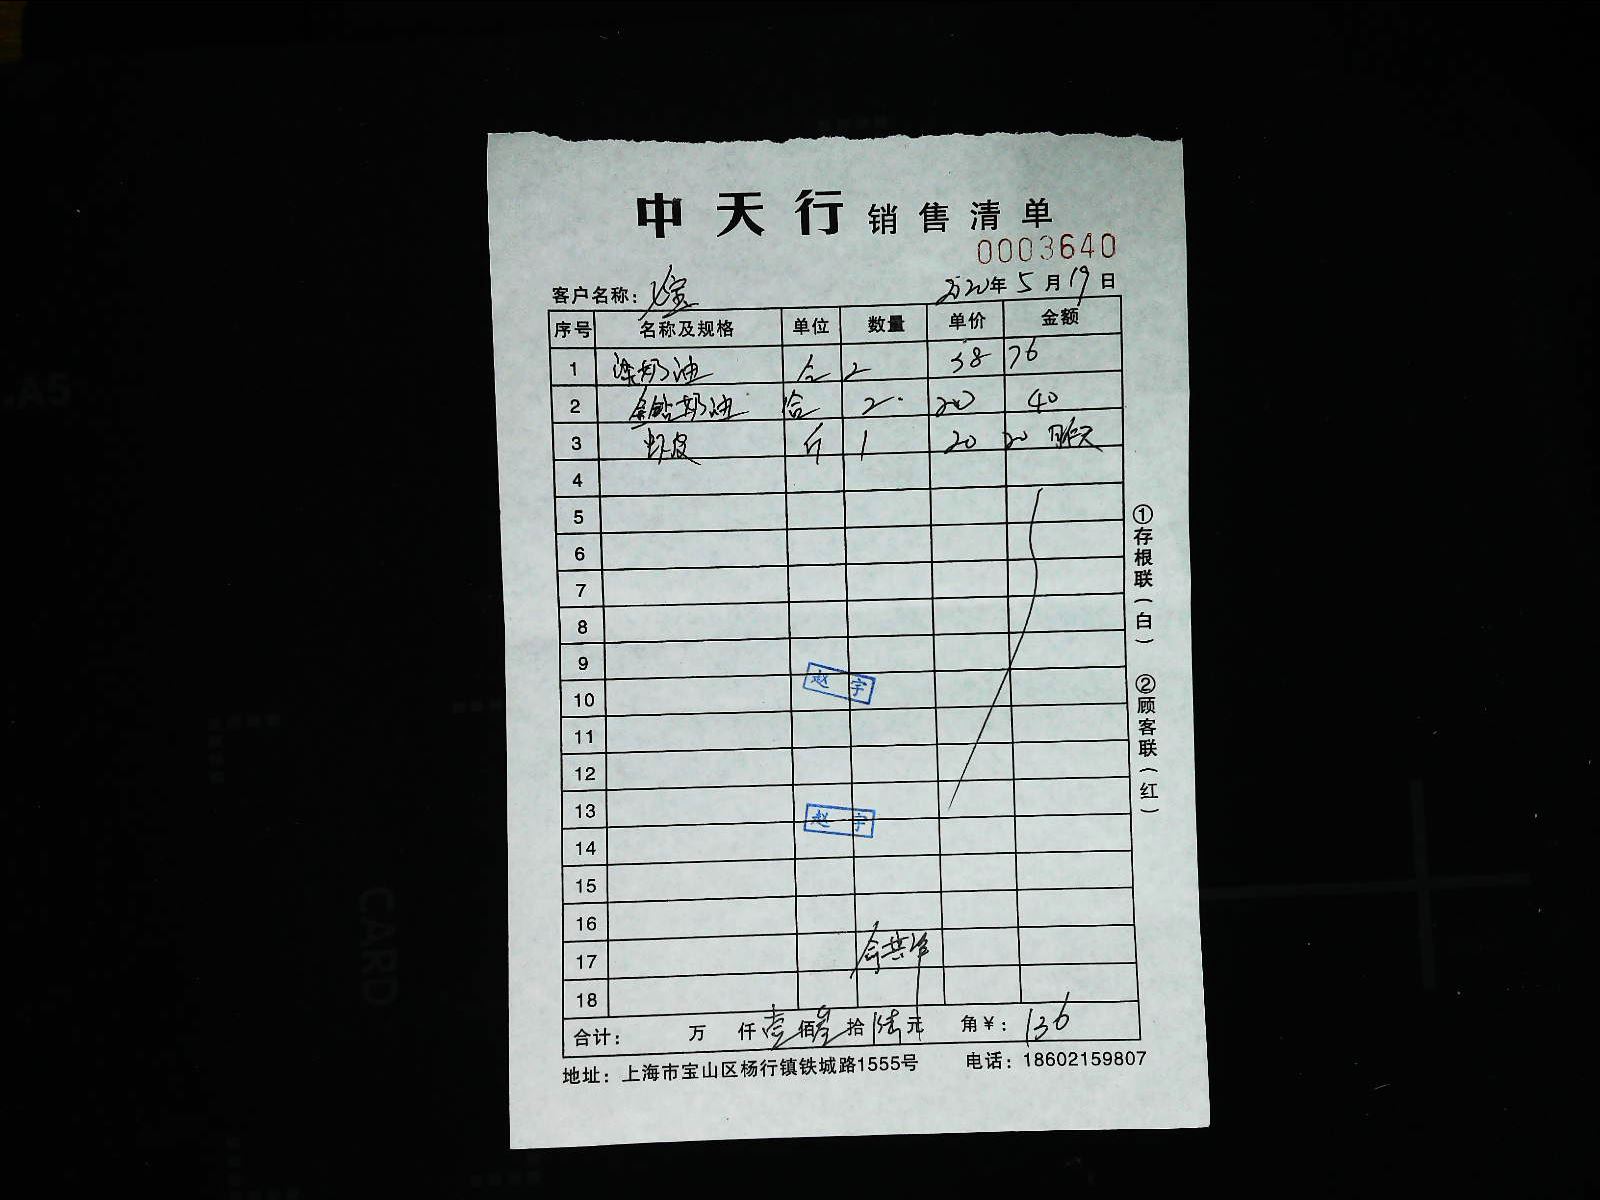 中天行 销售清单
0003640
客户名称: 宝 2020年5月19日
序号 名称及规格 单位 数量 单价 金额
1 淡奶油 2 38 76
2 金钻奶油 合 2 20 40
3 虾皮 斤 1 20 20 昨天
4
5
6
7
8
9
10 赵宇
11
12
13 赵宇
14
15
16
17
18
合计: 万 仟壹佰叁拾陆元 角¥: 136
地址: 上海市宝山区杨行镇铁城路1555号 电话: 18602159807
①存根联(白) ②顾客联(红)
A5
CARD